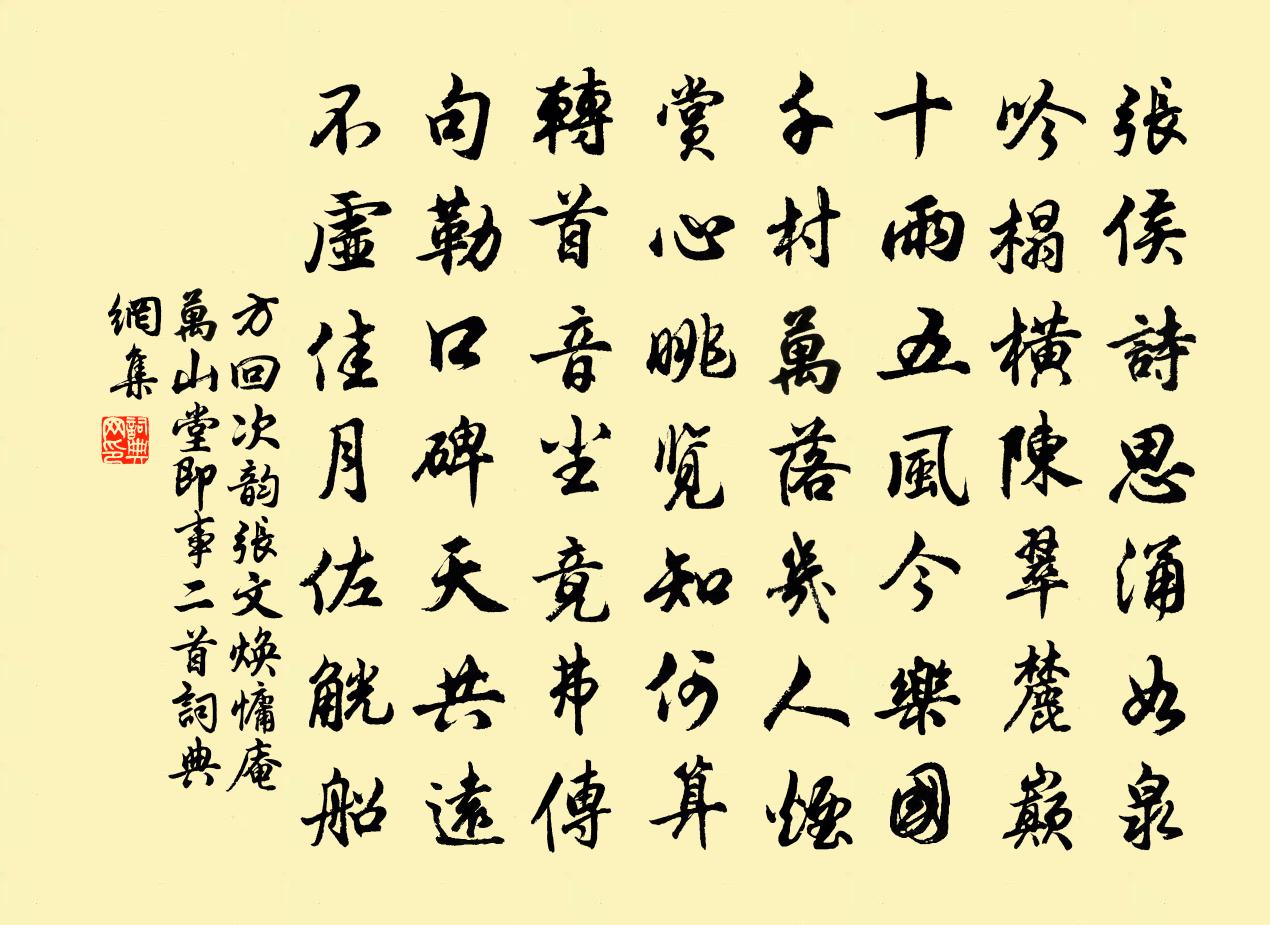 張侯詩思涌如泉
吟榻橫陳翠麓巔
十雨五風今樂國
千村萬落幾人煙
賞心眺覽知何算
轉首音尘竟弗傳
句勒口碑天共遠
不虛佳月佐觥船
方回次韵張文焕慵庵
萬山堂即事二首詞典
網集
詞典网印